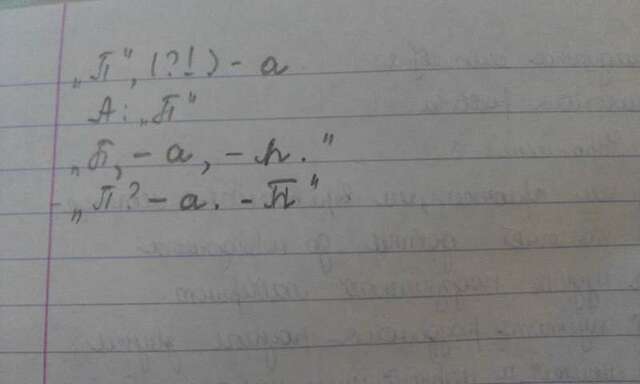 „П“, (?!) – а
А: „П“
„П, – а, – п.“
„П? – а. – П“